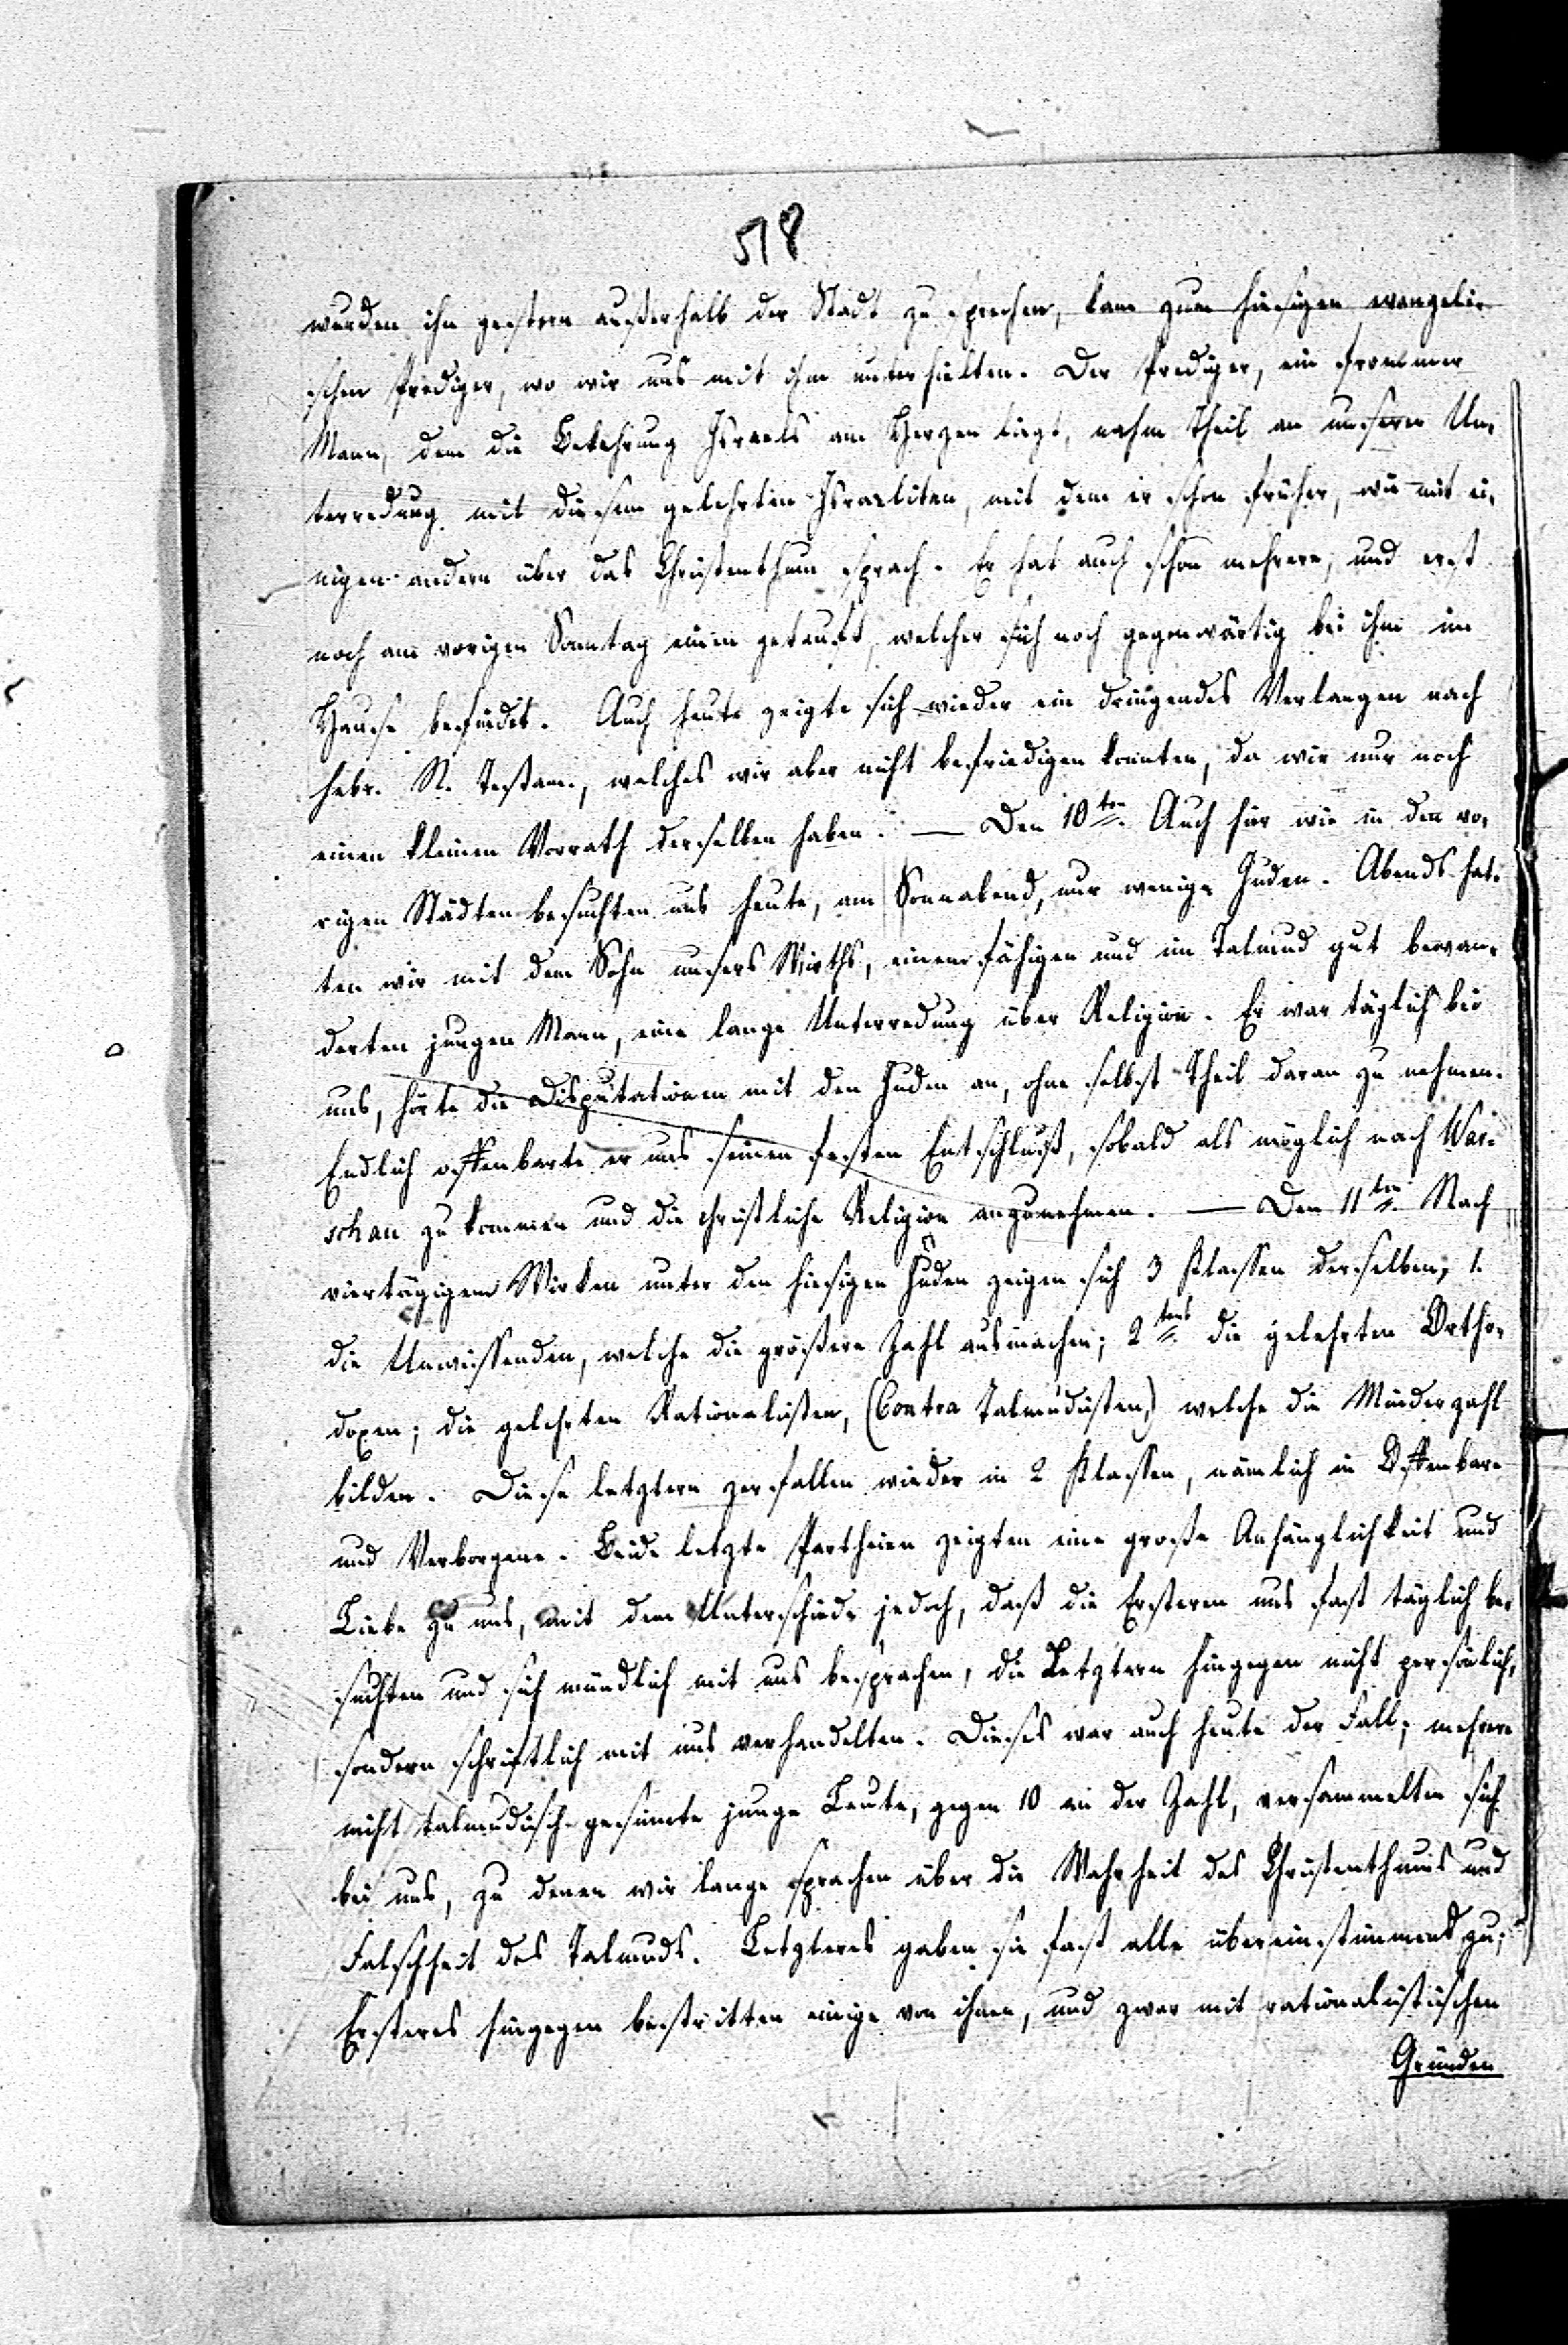 518
wurden ihn gestern außerhalb der Stadt zu sprechen, kam zum hiesigen evangeli-
schen Prediger, wo wir uns mit ihm unterhielten. Der Prediger, ein frommer
Mann, dem die Bekehrung Israels am Herzen liegt, nahm Theil an unserer Un-
terredung mit diesem gelehrten Israeliten, mit dem er schon früher, wie mit ei-
nigen andern über das Christenthum sprach. Er hat auch schon mehrere, und erst
noch am vorigen Sonntag einen getauft, welcher sich noch gegenwärtig bei ihm im
Hause befindet. Auch heute zeigte sich wieder ein dringendes Verlangen nach
hebr. N. Testam., welches wir aber nicht befriedigen konnten, da wir nur noch
einen kleinen Vorrath derselben haben. — Den 10ten. Auch hier wie in den vo-
rigen Städten besuchten uns heute, am Sonnabend, nur wenige Juden. Abends hat-
ten wir mit dem Sohn unsers Wirths, einem fähigen und im Talmud gut bewan-
derten jungen Mann, eine lange Unterredung über Religion. Er war täglich bei
uns, hörte die Disputationen mit den Juden an, ohne selbst Theil daran zu nehmen.
Endlich offenbarte er uns seinen festen Entschluß, sobald als möglich nach War-
schau zu kommen und die christliche Religion anzunehmen. — Den 11ten. Nach
viertägigem Wirken unter den hiesigen Juden zeigen sich 3 Klassen derselben, 1.
die Unwissenden, welche die größere Zahl ausmachen; 2tens die gelehrten Ortho-
doxen; die gelehrten Rationalisten, (Contra Talmudisten,) welche die Minderzahl
bilden. Diese letztern zerfallen wieder in 2 Klassen, nämlich in Offenbare
und Verborgene. Beide letzte Partheien zeigten eine große Anhänglichkeit und
Liebe zu uns, mit dem Unterschiede jedoch, daß die Ersteren uns fast täglich be-
suchten und sich mündlich mit uns besprachen, die Letztern hingegen nicht persönlich,
sondern schriftlich mit uns verhandelten. Dieses war auch heute der Fall; mehrere
nicht talmudisch-gesinnte junge Leute, gegen 10 an der Zahl, versammelten sich
bei uns, zu denen wir lange sprachen über die Wahrheit des Christenthums und
Falschheit des Talmuds. Letzteres gaben sie fast alle übereinstimmend zu;
Ersteres hingegen bestritten einige von ihnen, und zwar mit rationalistischen
Gründen